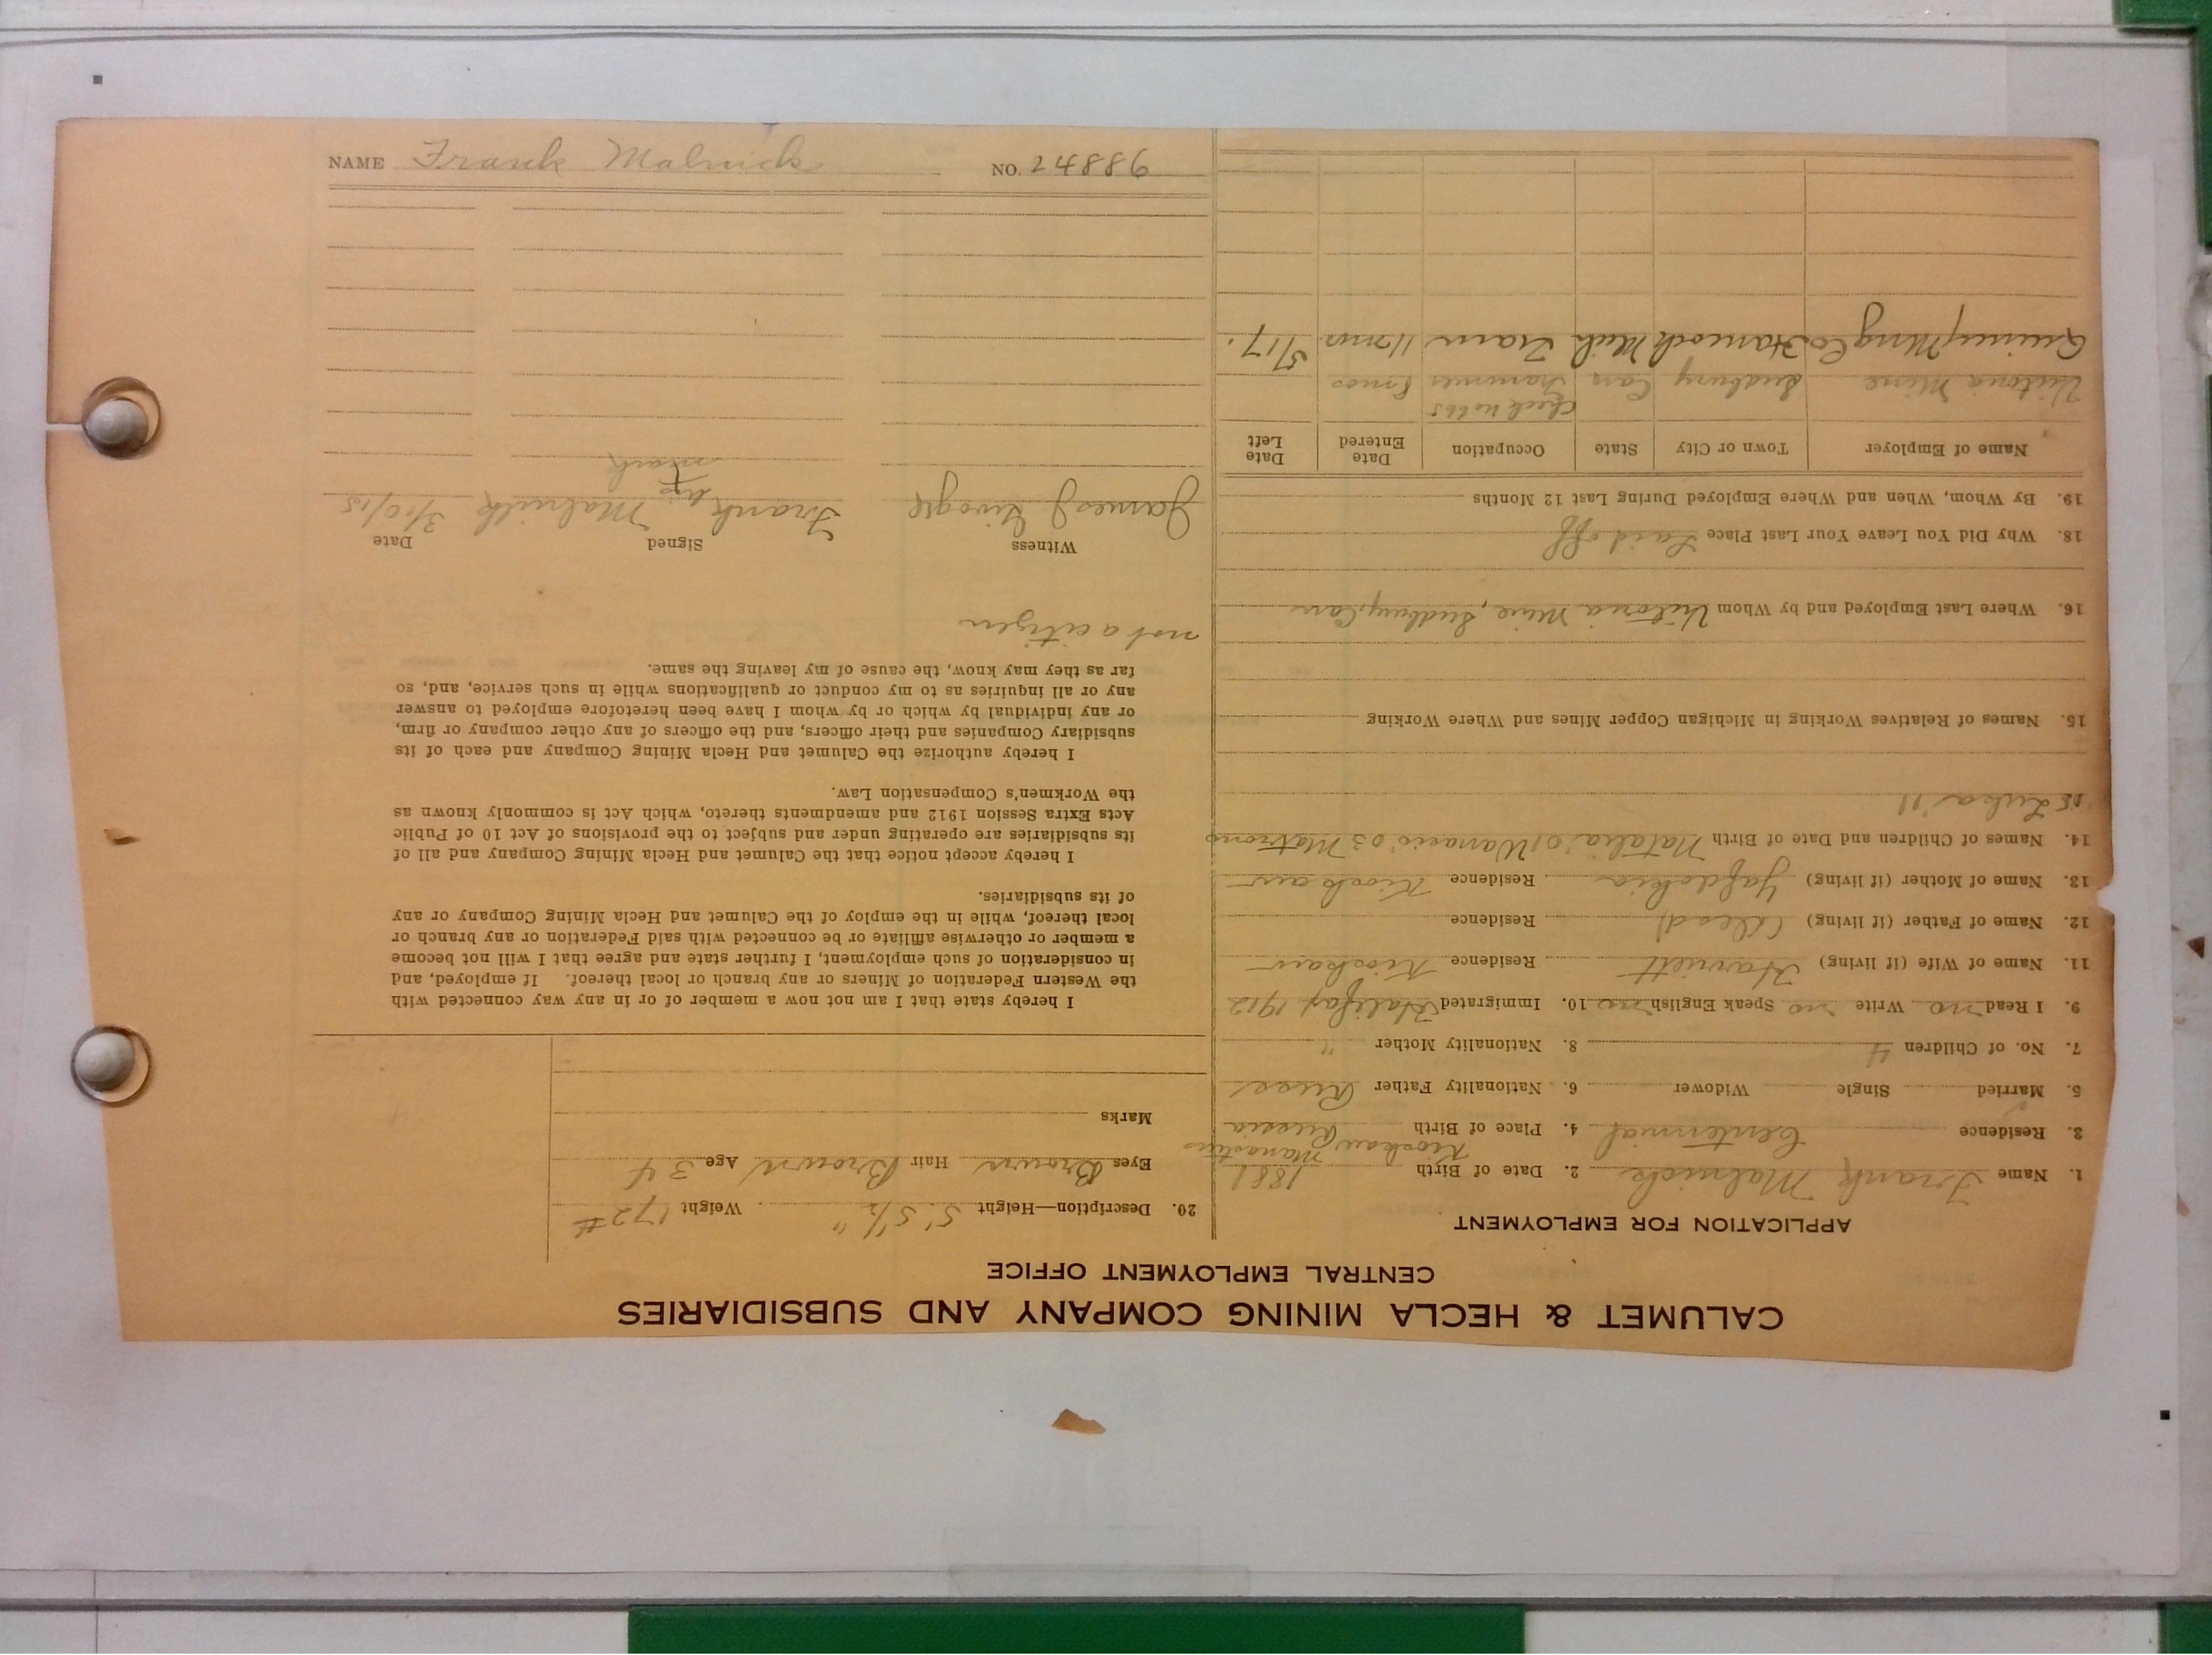 CALUMET & HECLA MINING COMPANY AND SUBSIDIARIES
CENTRAL EMPLOYMENT OFFICE
APPLICATION FOR EMPLOYMENT
1. Name Frank Malnick 2. Date of Birth 1881
3. Residence Centennial 4. Place of Birth Russia
5. Married Single Widower 6. Nationality Father Russ
7. No. of Children 4 8. Nationality Mother "
9. I Read no Write no Speak English no 10. Immigrated Halifax 1912
11. Name of Wife (if living) Harriett Residence
12. Name of Father (if living) (Dead) Residence
13. Name of Mother (if living) Residence
14. Names of Children and Date of Birth Natalia '01
'11
15. Names of Relatives Working in Michigan Copper Mines and Where Working
16. Where Last Employed and by Whom Victoria Mine, Sudbury, Can
18. Why Did You Leave Your Last Place Laid off
19. By Whom, When and Where Employed During Last 12 Months
Name of Employer Town or City State Occupation Date Entered Date Left
Victoria Mine Sudbury Can Trammer 8 mos
Quincy Mng Co Hancock Mich Tram 11 mos 5/17.
20. Description—Height 5' 5 1/2" Weight 172 #
Eyes Brown Hair Brown Age 34
Marks
I hereby state that I am not now a member of or in any way connected with
the Western Federation of Miners or any branch or local thereof. If employed, and
in consideration of such employment, I further state and agree that I will not become
a member or otherwise affiliate or be connected with said Federation or any branch or
local thereof, while in the employ of the Calumet and Hecla Mining Company or any
of its subsidiaries.
I hereby accept notice that the Calumet and Hecla Mining Company and all of
its subsidiaries are operating under and subject to the provisions of Act 10 of Public
Acts Extra Session 1912 and amendments thereto, which Act is commonly known as
the Workmen's Compensation Law.
I hereby authorize the Calumet and Hecla Mining Company and each of its
subsidiary Companies and their officers, and the officers of any other company or firm,
or any individual by which or by whom I have been heretofore employed to answer
any or all inquiries as to my conduct or qualifications while in such service, and, so
far as they may know, the cause of my leaving the same.
not a citizen
Witness Signed Date
James J Frank his x mark Malnick 3/10/15
NAME Frank Malnick NO. 24886